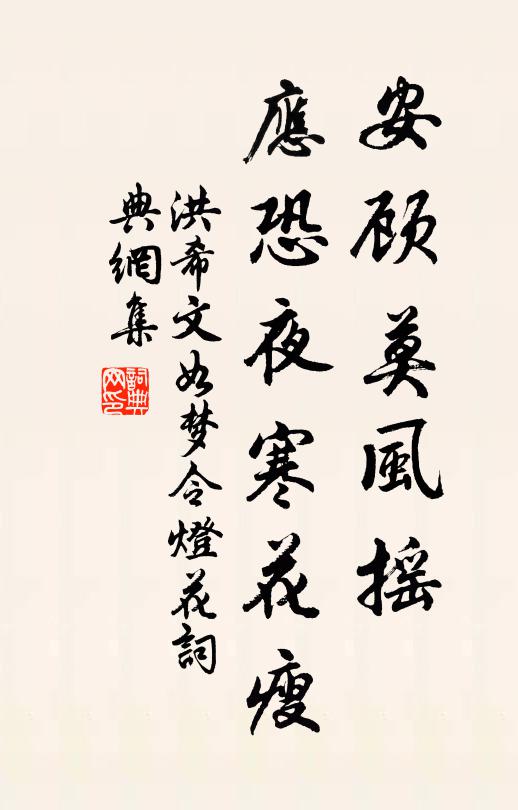 安顾莫風摇
應恐夜寒花瘦
洪希文如梦令燈花詞
典網集
詞典
网印